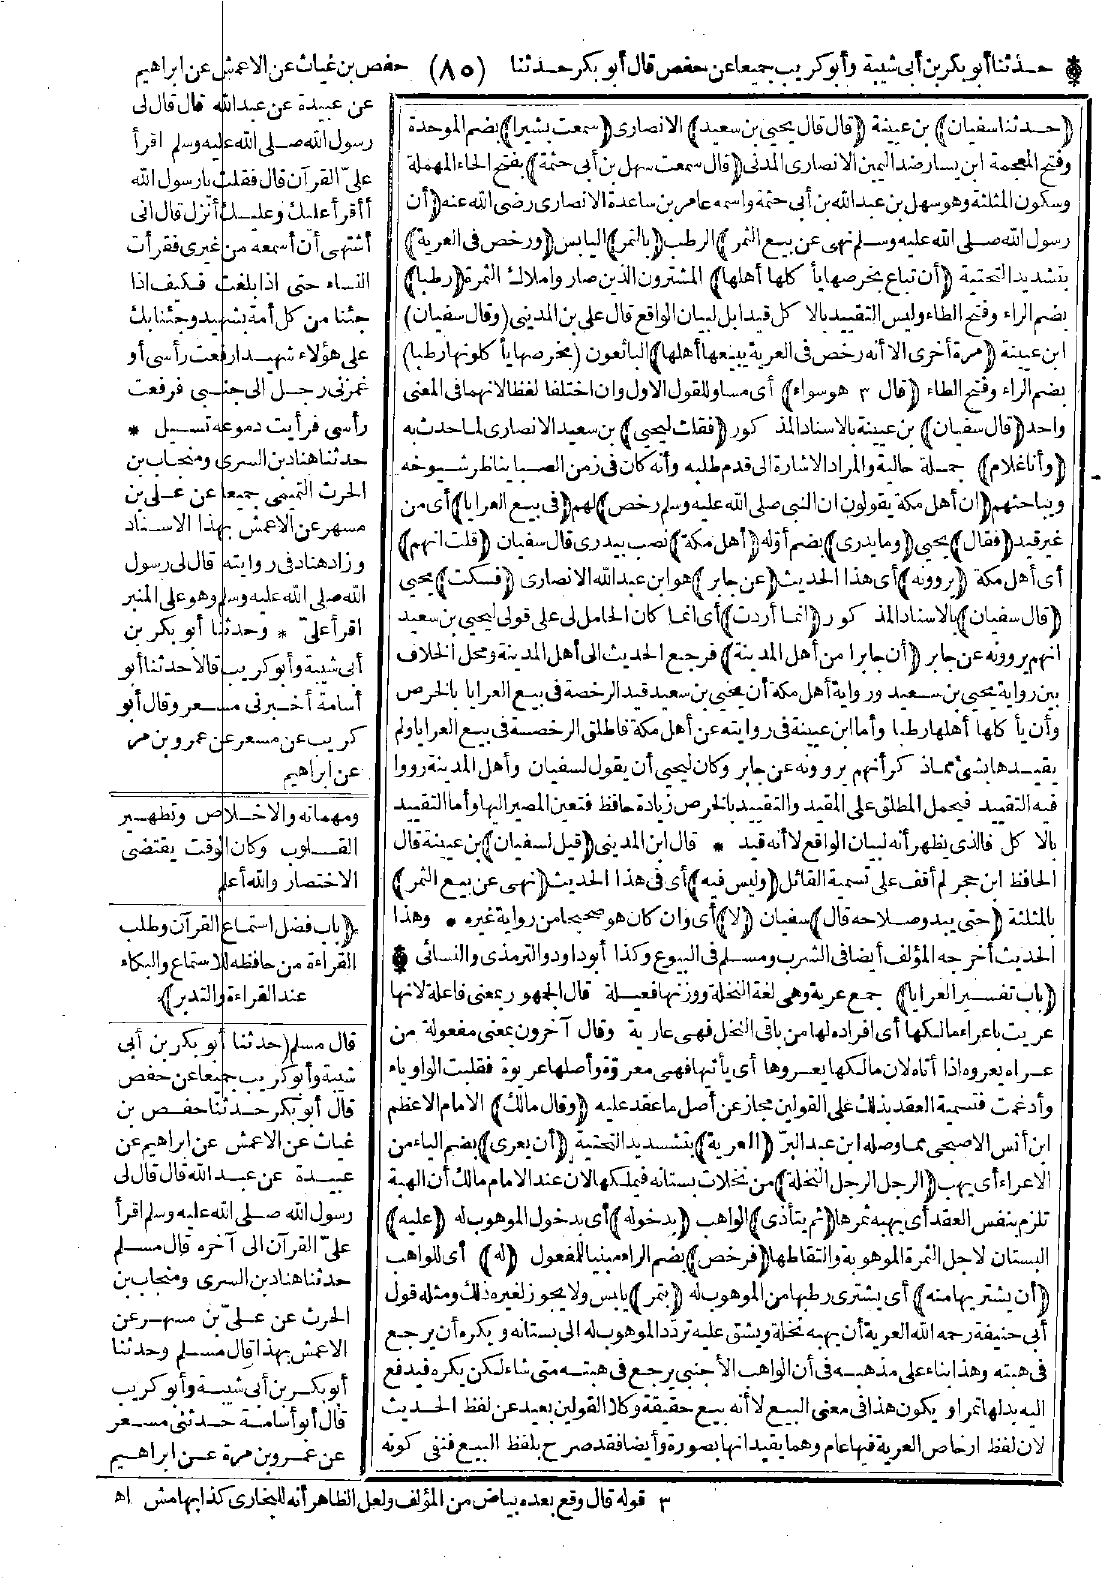 حدثنا أبو بكر بن أبى شيبة وأبو كريب جميعا عن حفص قال أبو بكر حدثنا (٨٠) حفص بن غياث عن الاعمش عن ابراهيم
(حدثنا سفيان) بن عيينة (قال قال يحيى بن سعيد) الانصارى (سمعت بشيرا) بضم الموحدة
وفتح المعجمة ابن يسار ضد اليمين الانصارى المدنى (قال سمعت سهل بن أبى حثمة) بفتح الحاء المهملة
وسكون المثلثة وهو سهل بن عبد الله بن أبى حثمة واسمه عامر بن ساعدة الانصارى رضى الله عنه (أن
رسول الله صلى الله عليه وسلم نهى عن بيع الثمر) الرطب (بالتمر) اليابس (ورخص فى العرية)
بتشديد التحتية (أن تباع بخرصها يأكلها أهلها) المشترون الذين صاروا ملاك الثمرة (رطبا)
بضم الراء وفتح الطاء وليس التقييد بالاكل قيدا بل لبيان الواقع قال على بن المدينى (وقال سفيان)
ابن عيينة (مرة أخرى الا أنه رخص فى العرية يبيعها أهلها) البائعون (بخرصها يأكلونها رطبا)
بضم الراء وفتح الطاء (قال ٣ هو سواء) أى مساو للقول الاول وان اختلفا لفظا لانهما فى المعنى
واحد (قال سفيان) بن عيينة بالاسناد المذكور (فقلت ليحيى) بن سعيد الانصارى لما حدث به
(وأنا غلام) جملة حالية والمراد الاشارة الى قدم طلبه وأنه كان فى زمن الصبا يناظر شيوخه
ويباحثهم (ان أهل مكة يقولون ان النبى صلى الله عليه وسلم رخص) لهم (فى بيع العرايا) أى من
غير قيد (فقال) يحيى (وما يدرى) بضم أوله (أهل مكة) نصب بيدرى قال سفيان (قلت انهم)
أى أهل مكة (يروونه) أى هذا الحديث (عن جابر) هو ابن عبد الله الانصارى (فسكت) يحيى
(قال سفيان) بالاسناد المذكور (انما أردت) أى انما كان الحامل لى على قولى ليحيى بن سعيد
انهم يروونه عن جابر (أن جابرا من أهل المدينة) فرجع الحديث الى أهل المدينة ومحل الخلاف
بين رواية يحيى بن سعيد ورواية أهل مكة أن يحيى بن سعيد قيد الرخصة فى بيع العرايا بالخرص
وأن يأكلها أهلها رطبا وأما ابن عيينة فى روايته عن أهل مكة فاطلق الرخصة فى بيع العرايا ولم
يقيدها بشئ مماذكر أنهم يروونه عن جابر وكان ليحيى أن يقول لسفيان وأهل المدينة رووا
فيه التقييد فيحمل المطلق على المقيد والتقييد بالخرص زيادة حافظ فتعين المصير اليها وأما التقييد
بالاكل فالذى يظهر أنه لبيان الواقع لا أنه قيد * قال ابن المدينى (قيل لسفيان) بن عيينة قال
الحافظ ابن حجر لم أقف على تسمية القائل (وليس فيه) أى فى هذا الحديث (نهى عن بيع الثمر)
بالمثلثة (حتى يبدو صلاحه قال) سفيان (لا) أى وان كان هو صحيحا من رواية غيره * وهذا
الحديث أخرجه المؤلف أيضا فى الشرب ومسلم فى البيوع وكذا أبو داود والترمذى والنسائى
(باب تفسير العرايا) جمع عرية وهى لغة النخلة ووزنها فعيلة قال الجمهور بمعنى فاعلة لانها
عريت باعراء مالكها أى افراده لها من باقى النخل فهى عارية وقال آخرون بمعنى مفعولة من
عراه يعروه اذا أتاه لان مالكها يعروها أى يأتيها فهى معروّة وأصلها عريوة فقلبت الواو ياء
وأدغمت فتسمية العقد بذلك على القولين مجاز عن أصل ما عقد عليه (وقال مالك) الامام الاعظم
ابن أنس الاصبحى مما وصله ابن عبد البرّ (العرية) بتشديد التحتية (أن يعرى) بضم الياء من
الاعراء أى يهب (الرجل الرجل النخلة) من نخلات بستانه فيملكها لان عند الامام مالك أن الهبة
تلزم بنفس العقد أى يهبه ثمرها (ثم يتأذى) الواهب (بدخوله) أى بدخول الموهوب له (عليه)
البستان لاجل الثمرة الموهوبة والتقاطها (فرخص) بضم الراء مبنيا للمفعول (له) أى للواهب
(أن يشتريها منه) أى يشترى رطبها من الموهوب له (بتمر) يابس ولا يجوز لغيره ذلك ومثله قول
أبى حنيفة رحمه الله العرية أن يهبه نخلة ويشق عليه تردّد الموهوب له الى بستانه ويكره أن يرجع
فى هبته وهذا بناء على مذهبه فى أن الواهب الأجنبى يرجع فى هبته متى شاء لكن يكره فيدفع
اليه بدلها تمرا ويكون هذا فى معنى البيع لا أنه بيع حقيقة وكلا القولين بعيد عن لفظ الحديث
لان لفظ ارخاص العرية فيها عام وهما يقيدانها بصورة وأيضا فقد صرح بلفظ البيع فنفى كونه
عن عبيدة عن عبد الله قال قال لى
رسول الله صلى الله عليه وسلم اقرأ
علىّ القرآن قال فقلت يارسول الله
أأقرأ عليك وعليك أنزل قال انى
أشتهى أن أسمعه من غيرى فقرأت
النساء حتى اذا بلغت فكيف اذا
جئنا من كل أمة بشهيد وجئنا بك
على هؤلاء شهيدا رفعت رأسى أو
غمزنى رجل الى جنبى فرفعت
رأسى فرأيت دموعه تسيل *
حدثنا هناد بن السرى ومنجاب بن
الحرث التميمى جميعا عن على بن
مسهر عن الاعمش بهذا الاسناد
وزاد هناد فى روايته قال لى رسول
الله صلى الله عليه وسلم وهو على المنبر
اقرأ علىّ * وحدثنا أبو بكر بن
أبى شيبة وأبو كريب قالا حدثنا أبو
أسامة أخبرنى مسعر وقال أبو
كريب عن مسعر عن عمرو بن مرة
عن ابراهيم
ومهماته والاخلاص وتطهير
القلوب وكان الوقت يقتضى
الاختصار والله أعلم
(باب فضل استماع القرآن وطلب
القراءة من حافظه للاستماع والبكاء
عند القراءة والتدبر)
قال مسلم (حدثنا أبو بكر بن أبى
شيبة وأبو كريب جميعا عن حفص
قال أبو بكر حدثنا حفص بن
غياث عن الاعمش عن ابراهيم عن
عبيدة عن عبد الله قال قال لى
رسول الله صلى الله عليه وسلم اقرأ
علىّ القرآن الى آخره قال مسلم
حدثنا هناد بن السرى ومنجاب بن
الحرث عن علىّ بن مسهر عن
الاعمش بهذا قال مسلم وحدثنا
أبو بكر بن أبى شيبة وأبو كريب
قال أبو أسامة حدثنى مسعر
عن عمرو بن مرة عن ابراهيم
٣ قوله قال وقع بعده بياض من المؤلف ولعل الظاهر أنه للبخارى كذا بهامش اه